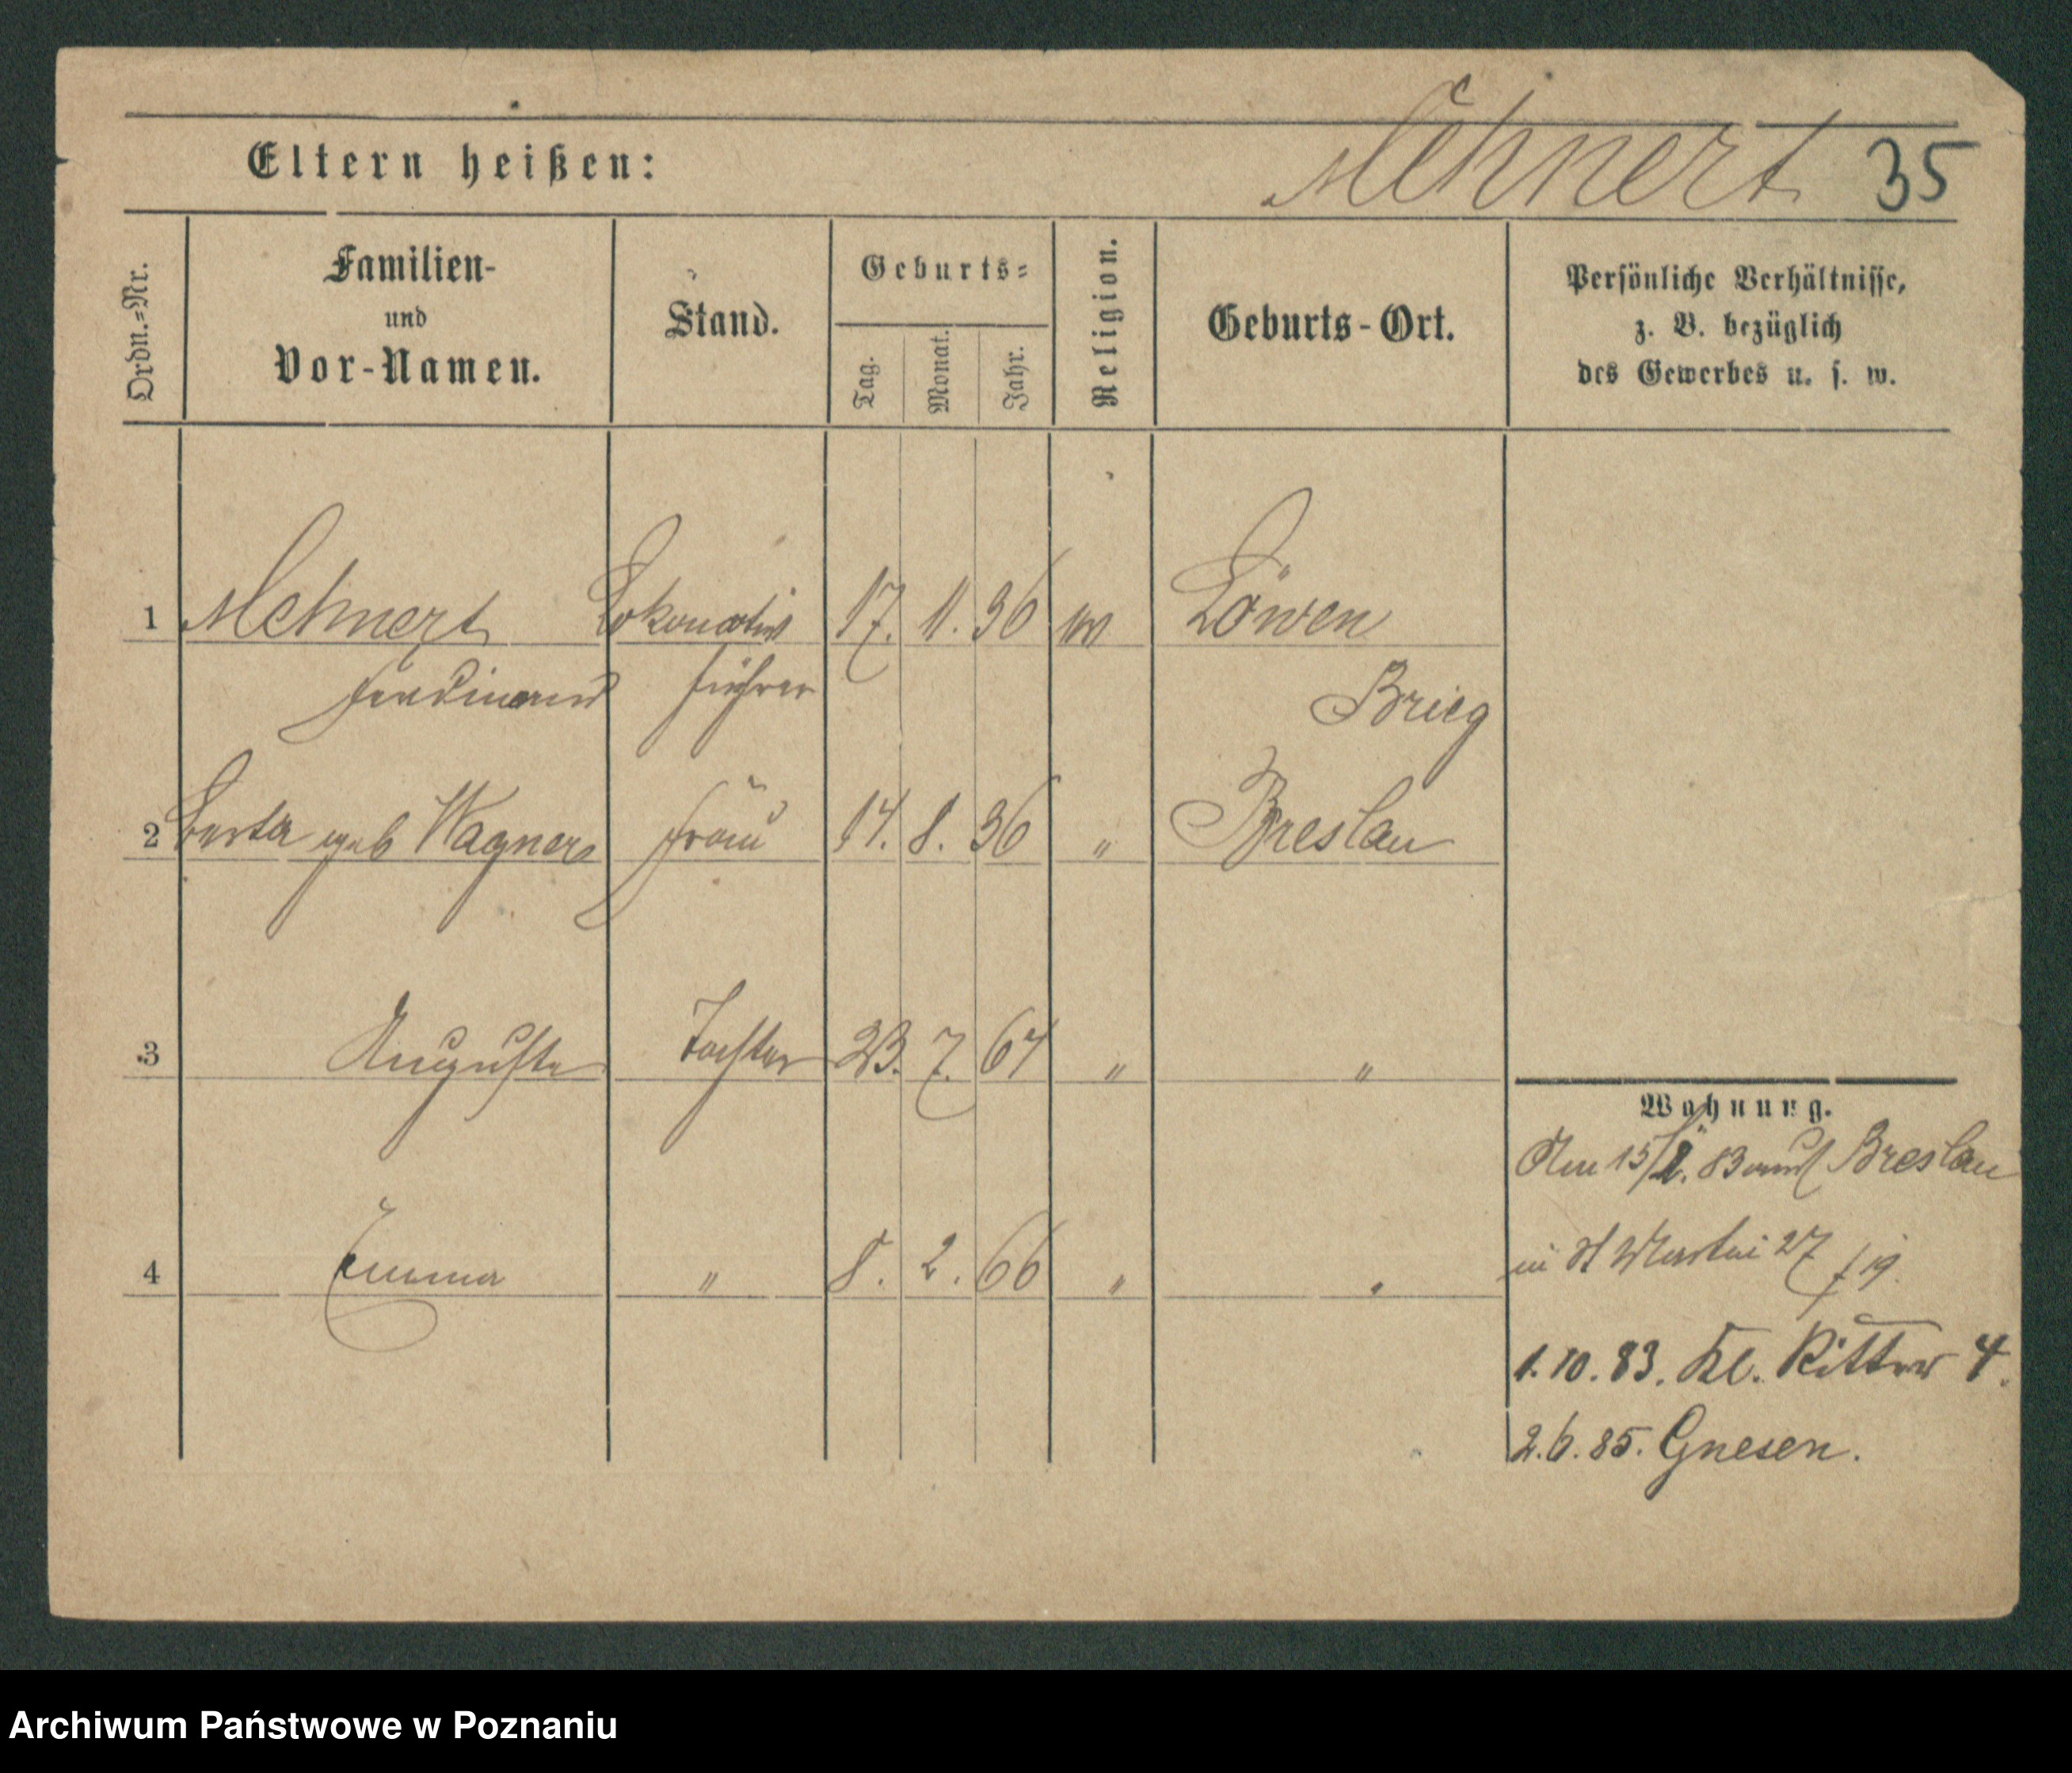 Eltern heißen:
Mehnert 35
Ordn.=Nr.
Familien-
und
Vor-Namen.
Stand.
Geburts=
Tag.
Monat.
Jahr.
Religion.
Geburts-Ort.
Persönliche Verhältnisse,
z. B. bezüglich
des Gewerbes u. s. w.
1 Mehnert Lokomotiv 17. 11. 36 Löwen
Ferdinand führer Brieg
2 Berta geb Wagner Frau 14. 8. 36 " Breslau
3 Auguste Tochter 23. 7. 64 " "
4 Emma " 8. 2. 66 " "
Wohnung.
Am 15/2. 83 aus Breslau
in St Martin 27
1.10.83. Kl. Ritter 4.
2.6.85. Gnesen.
Archiwum Państwowe w Poznaniu